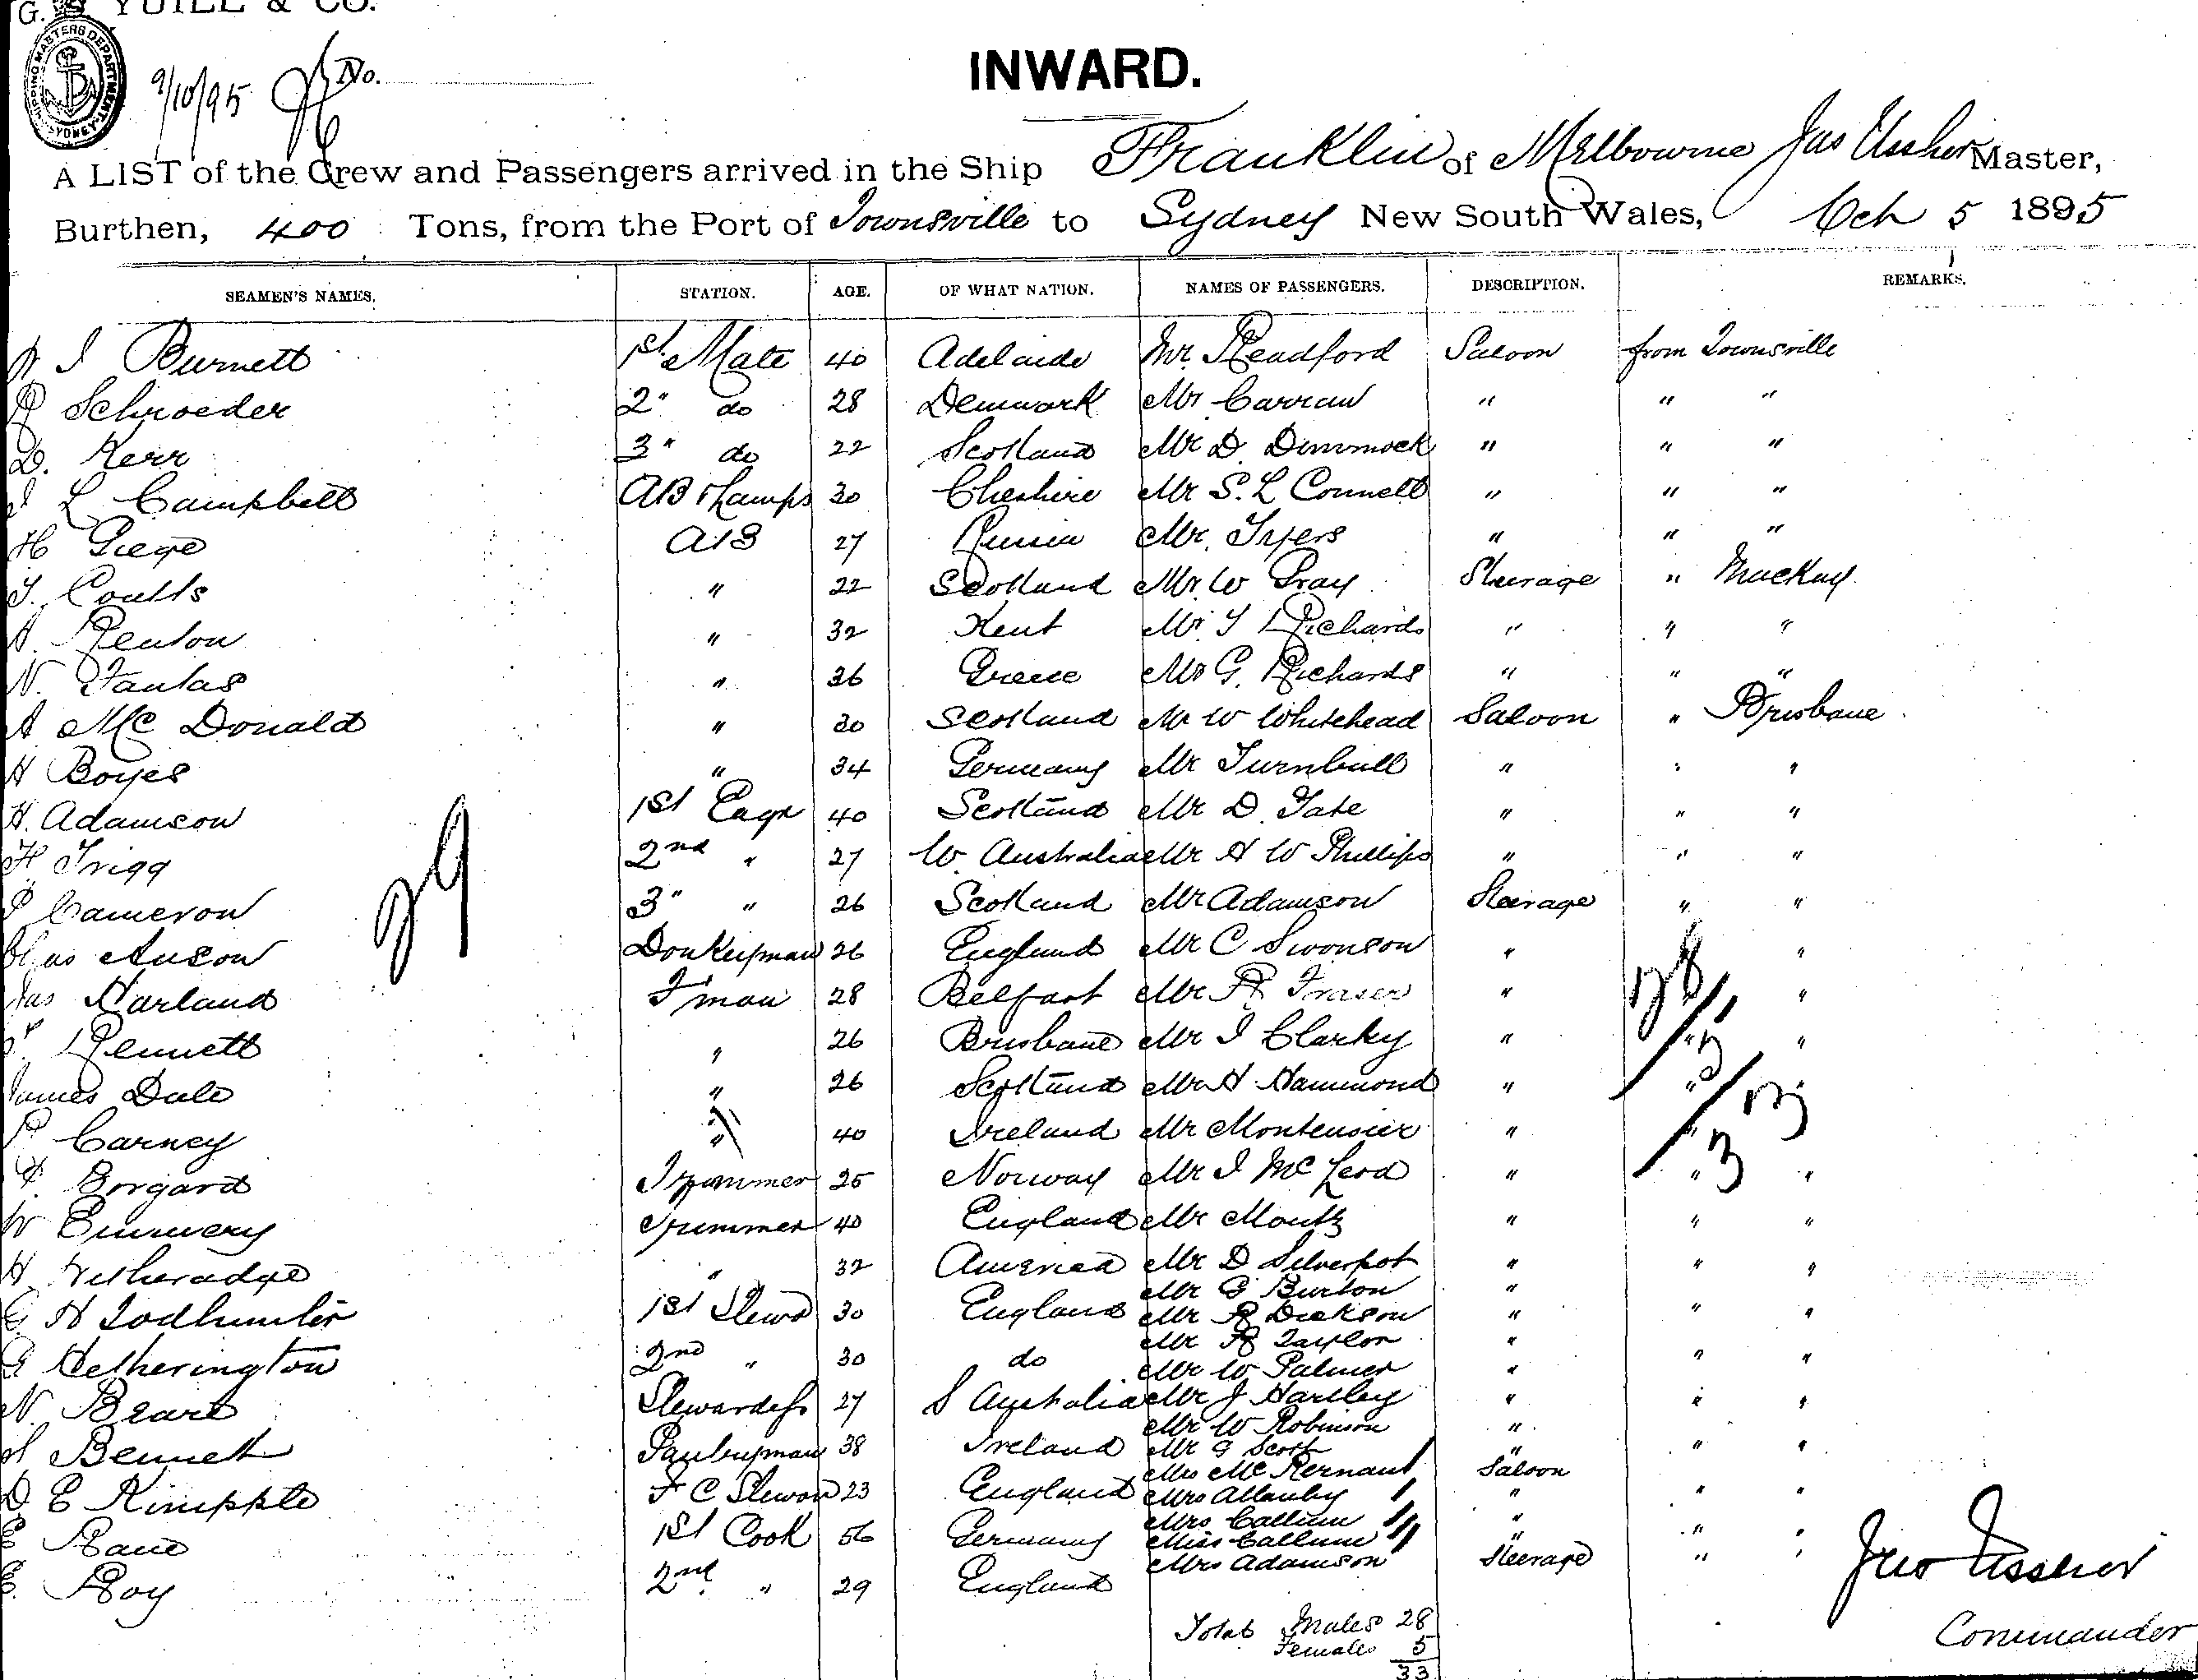 G. S. YUILL & CO.
SHIPPING MASTERS DEPARTMENT SYDNEY
9/10/95 No.
INWARD.
A LIST of the Crew and Passengers arrived in the Ship Franklin of Melbourne Jas Ussher Master,
Burthen, 400 Tons, from the Port of Townsville to Sydney New South Wales, Oct 5 1895
SEAMEN'S NAMES. STATION. AGE. OF WHAT NATION. NAMES OF PASSENGERS. DESCRIPTION. REMARKS.
J Burnett 1st Mate 40 Adelaide Mr. Readford Saloon from Townsville
Schroeder 2" do 28 Denmark Mr Carran " " "
D. Kerr 3" do 22 Scotland Mr D. Dimmock " " "
L Campbell AB & Lamps 30 Cheshire Mr S. L Connell " " "
H Giege AB 27 Russia Mr. Tyers " " "
J. Coutts " 22 Scotland Mr. W Gray Steerage " Mackay
Renton " 32 Kent Mr. T Richards " " "
N. Fantas " 26 Greece Mr G. Richards " " "
A Mc Donald " 30 Scotland Mr W Whitehead Saloon " Brisbane
H Boyes " 34 Germany Mr Turnbull " " "
H. Adamson 1st Engr 40 Scotland Mr D. Tate " " "
H Trigg 2nd " 27 W. Australia Mr H W Phillips " " "
P Cameron 3" " 26 Scotland Mr Adamson Steerage " "
Chas Anson Donkeyman 26 England Mr C Swonson " "
Jas Harland F'man 28 Belfast Mr R Fraser " "
Rennett " 26 Brisbane Mr J Clarky " " "
James Dale " 26 Scotland Mr H Hammond " "
P Carney " 40 Ireland Mr Montensier "
Borgard Trimmer 25 Norway Mr J McLeod " " "
W Emmery Trimmer 40 England Mr Moutz " " "
H Netheradge " 32 America Mr D Silverpot " " "
Mr G Burton "
G H Todhunter 1st Stewd 30 England Mr R Dickson " " "
Mr R Taylor "
G Hetherington 2nd " 30 do Mr W Palmer " " "
N. Beare Stewardess 27 S Australia Mr J Hartley " " "
Mr W Robinson "
H Bennett Pantryman 38 Ireland Mr G Scott " " "
Mrs McKernan Saloon
D E Kimpple F C Steward 23 England Mrs Allanby " " "
Mrs Callum "
E Rane 1st Cook 56 Germany Miss Callum " " "
Mrs Adamson Steerage " "
E. Roy 2nd " 29 England
29
28
5
3
Total Males 28
Females 5
33
Jas Ussher
Commander